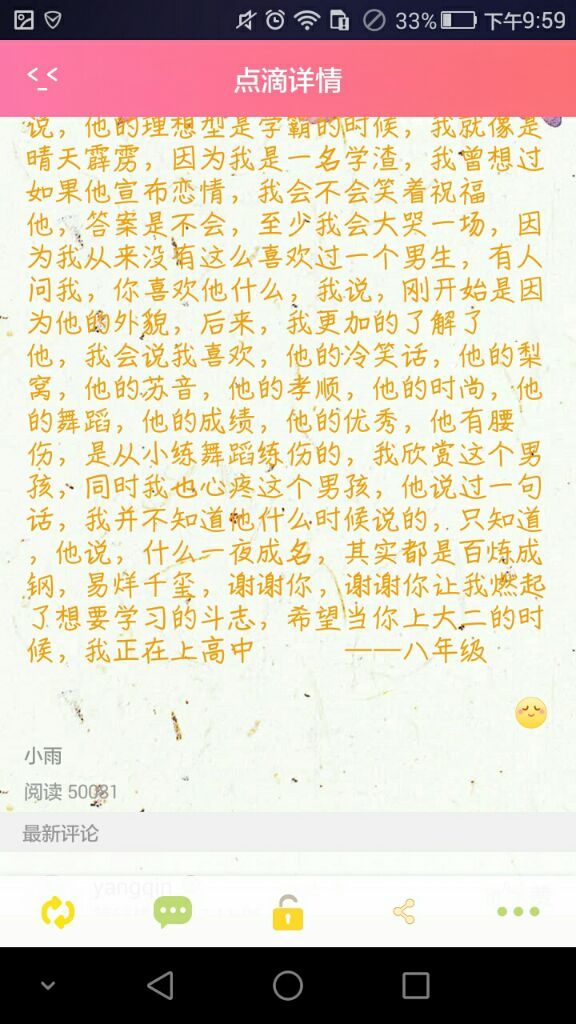 33% 下午9:59
点滴详情
说，他的理想型是学霸的时候，我就像是
晴天霹雳，因为我是一名学渣，我曾想过
如果他宣布恋情，我会不会笑着祝福
他，答案是不会，至少我会大哭一场，因
为我从来没有这么喜欢过一个男生，有人
问我，你喜欢他什么，我说，刚开始是因
为他的外貌，后来，我更加的了解了
他，我会说我喜欢，他的冷笑话，他的梨
窝，他的苏音，他的孝顺，他的时尚，他
的舞蹈，他的成绩，他的优秀，他有腰
伤，是从小练舞蹈练伤的，我欣赏这个男
孩，同时我也心疼这个男孩，他说过一句
话，我并不知道他什么时候说的，只知道
，他说，什么一夜成名，其实都是百炼成
钢，易烊千玺，谢谢你，谢谢你让我燃起
了想要学习的斗志，希望当你上大二的时
候，我正在上高中 ——八年级
小雨
阅读 50081
最新评论
yangqin